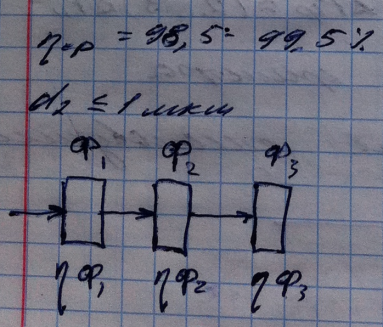 η пр = 98,5 ÷ 99,5 %
d₂ ≤ 1 мкм
Ф₁ Ф₂ Ф₃
η Ф₁ η Ф₂ η Ф₃